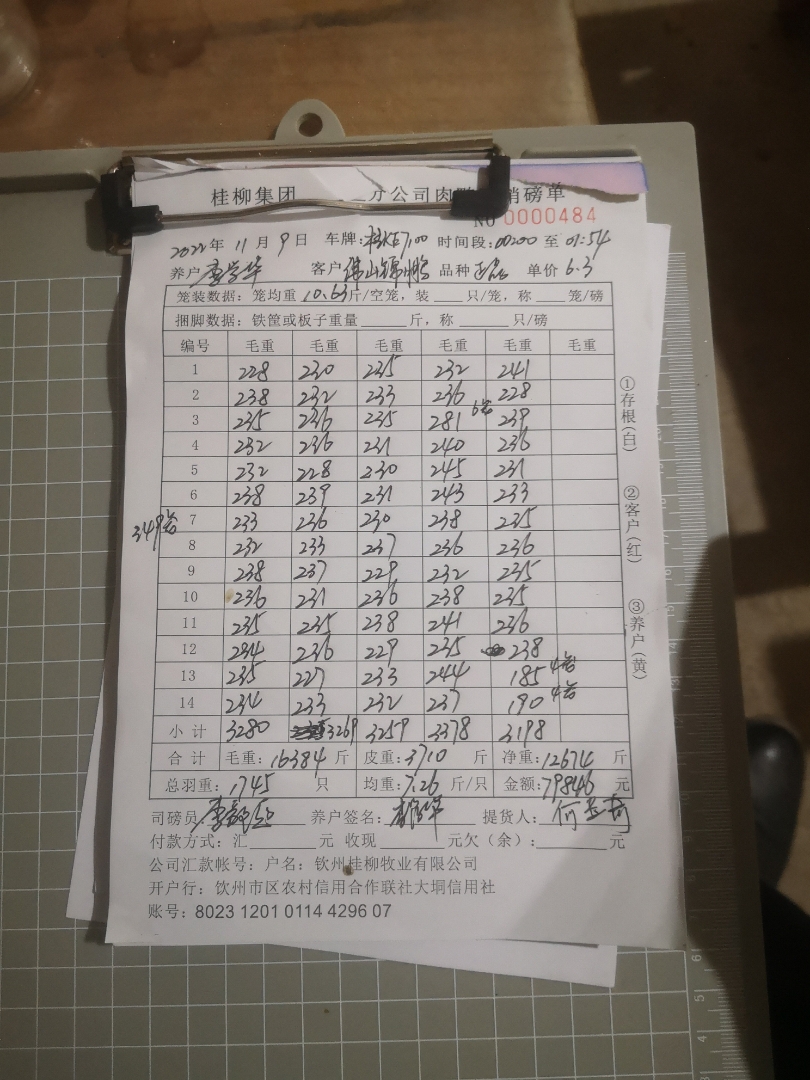 桂柳集团 分公司肉 销磅单
NO 0000484
2022年 11月 9日 车牌: 时间段:00:00 至 01:54
养户 客户 品种 单价 6.3
笼装数据：笼均重 10.63斤/空笼，装____只/笼，称____笼/磅
捆脚数据：铁筐或板子重量______斤，称______只/磅
编号 毛重 毛重 毛重 毛重 毛重 毛重
1 228 230 235 232 241
2 238 232 233 236 228
3 235 236 235 281 6笼 239
4 232 236 231 240 236
5 232 228 230 245 231
6 238 239 231 243 233
349笼
7 233 236 230 238 235
8 232 233 237 236 236
9 238 237 229 232 235
10 236 231 236 238 235
11 235 235 238 241 236
12 234 236 229 235 238
13 235 227 233 244 185 4笼
14 234 233 232 237 190 4笼
小计 3280 3269 3259 3378 3198
合计 毛重:16384 斤 皮重:3710 斤 净重:12674 斤
总羽重:1745 只 均重:7.26 斤/只 金额:79846 元
司磅员 养户签名: 提货人:
付款方式：汇________元 收现________元欠（余）:________元
公司汇款帐号：户名：钦州桂柳牧业有限公司
开户行：钦州市区农村信用合作联社大垌信用社
账号：8023 1201 0114 4296 07
①存根(白)
②客户(红)
③养户(黄)